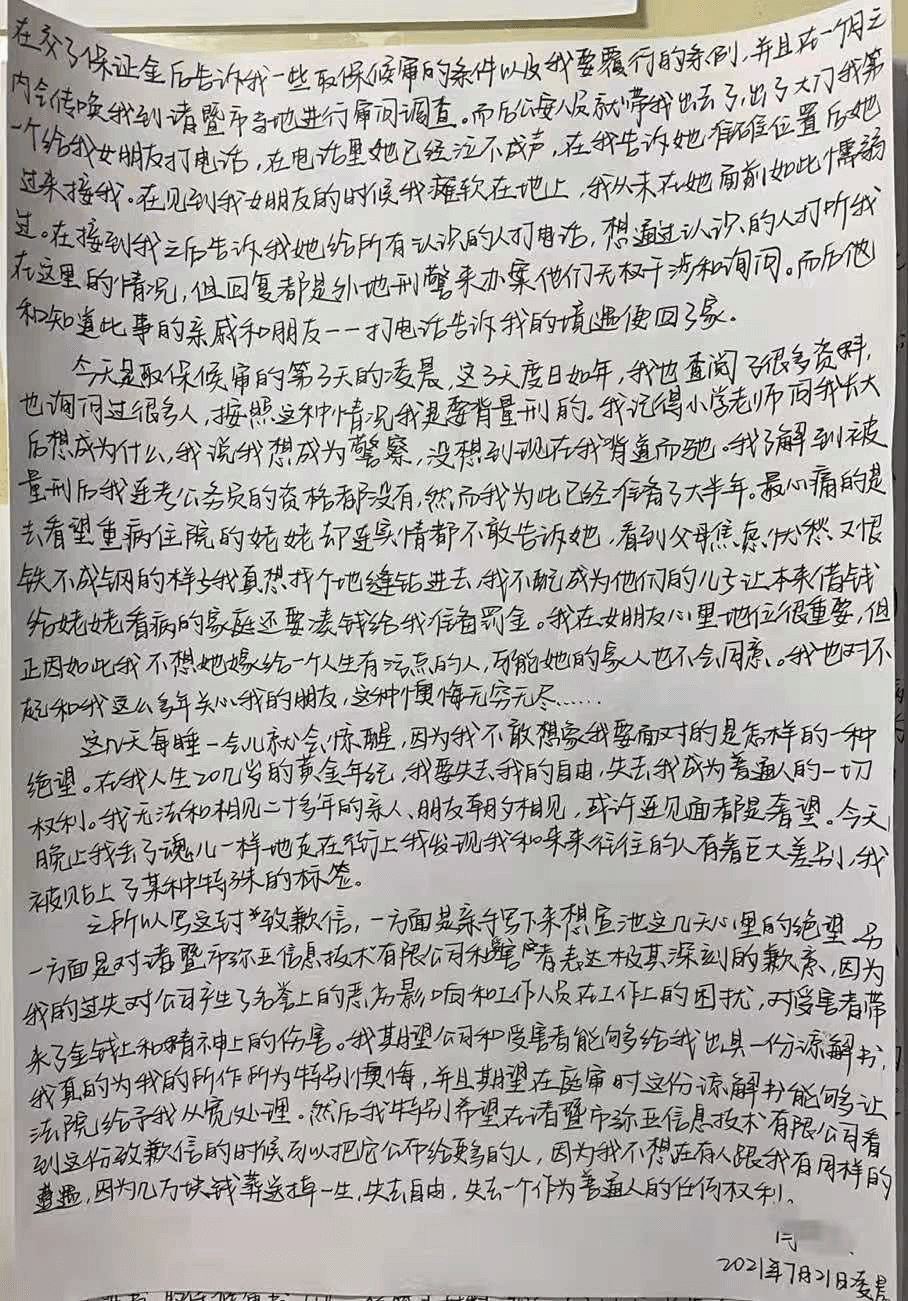 在交了保证金后告诉我一些取保候审的条件以及我要覆行的条例，并且在一个月之
内会传唤我到诸暨市当地进行审问调查。而后公安人员就带我出去了，出了大门我第
一个给我女朋友打电话，在电话里她已经泣不成声，在我告诉她准确位置后她
过来接我。在见到我女朋友的时候我瘫软在地上，我从未在她面前如此懦弱
过。在接到我之后告诉我她给所有认识的人打电话，想通过认识的人打听我
在这里的情况，但回复都是外地刑警来办案他们无权干涉和询问。而后他
和知道此事的亲戚和朋友一一打电话告诉我的境遇便回了家。
今天是取保候审的第3天的凌晨，这3天度日如年，我也查阅了很多资料，
也询问过很多人，按照这种情况我是要背量刑的。我记得小学老师问我长大
后想成为什么，我说我想成为警察，没想到现在我背道而驰。我了解到被
量刑后我连考公务员的资格都没有，然而我为此已经准备了大半年。最心痛的是
去看望重病住院的姥姥却连实情都不敢告诉她，看到父母焦虑、忧愁又恨
铁不成钢的样子我真想找个地缝钻进去，我不配成为他们的儿子让本来借钱
给姥姥看病的家庭还要凑钱给我准备罚金。我在女朋友心里地位很重要，但
正因如此我不想她嫁给一个人生有污点的人，可能她的家人也不会同意。我也对不
起和我这么多年关心我的朋友，这种懊悔无穷无尽……
这几天每睡一会儿就会惊醒，因为我不敢想象我要面对的是怎样的一种
绝望。在我人生20几岁的黄金年纪，我要失去我的自由，失去我成为普通人的一切
权利。我无法和相见二十多年的亲人、朋友朝夕相见，或许连见面都是奢望。今天
晚上我丢了魂儿一样地走在街上我发现我和来来往往的人有着巨大差别，我
被贴上了某种特殊的标签。
之所以写这封致歉信，一方面是亲手写下来想宣泄这几天心里的绝望，另
一方面是对诸暨市弥亚信息技术有限公司和受害者表达极其深刻的歉意，因为
我的过失对公司产生了名誉上的恶劣影响和工作人员在工作上的困扰，对受害者带
来了金钱上和精神上的伤害。我期望公司和受害者能够给我出具一份谅解书，
我真的为我的所作所为特别懊悔，并且期望在庭审时这份谅解书能够让
法院给予我从宽处理。然后我特别希望在诸暨市弥亚信息技术有限公司看
到这份致歉信的时候可以把它公布给更多的人，因为我不想在有人跟我有同样的
遭遇，因为几万块钱葬送掉一生，失去自由，失去一个作为普通人的任何权利。
闫
2021年7月21日凌晨